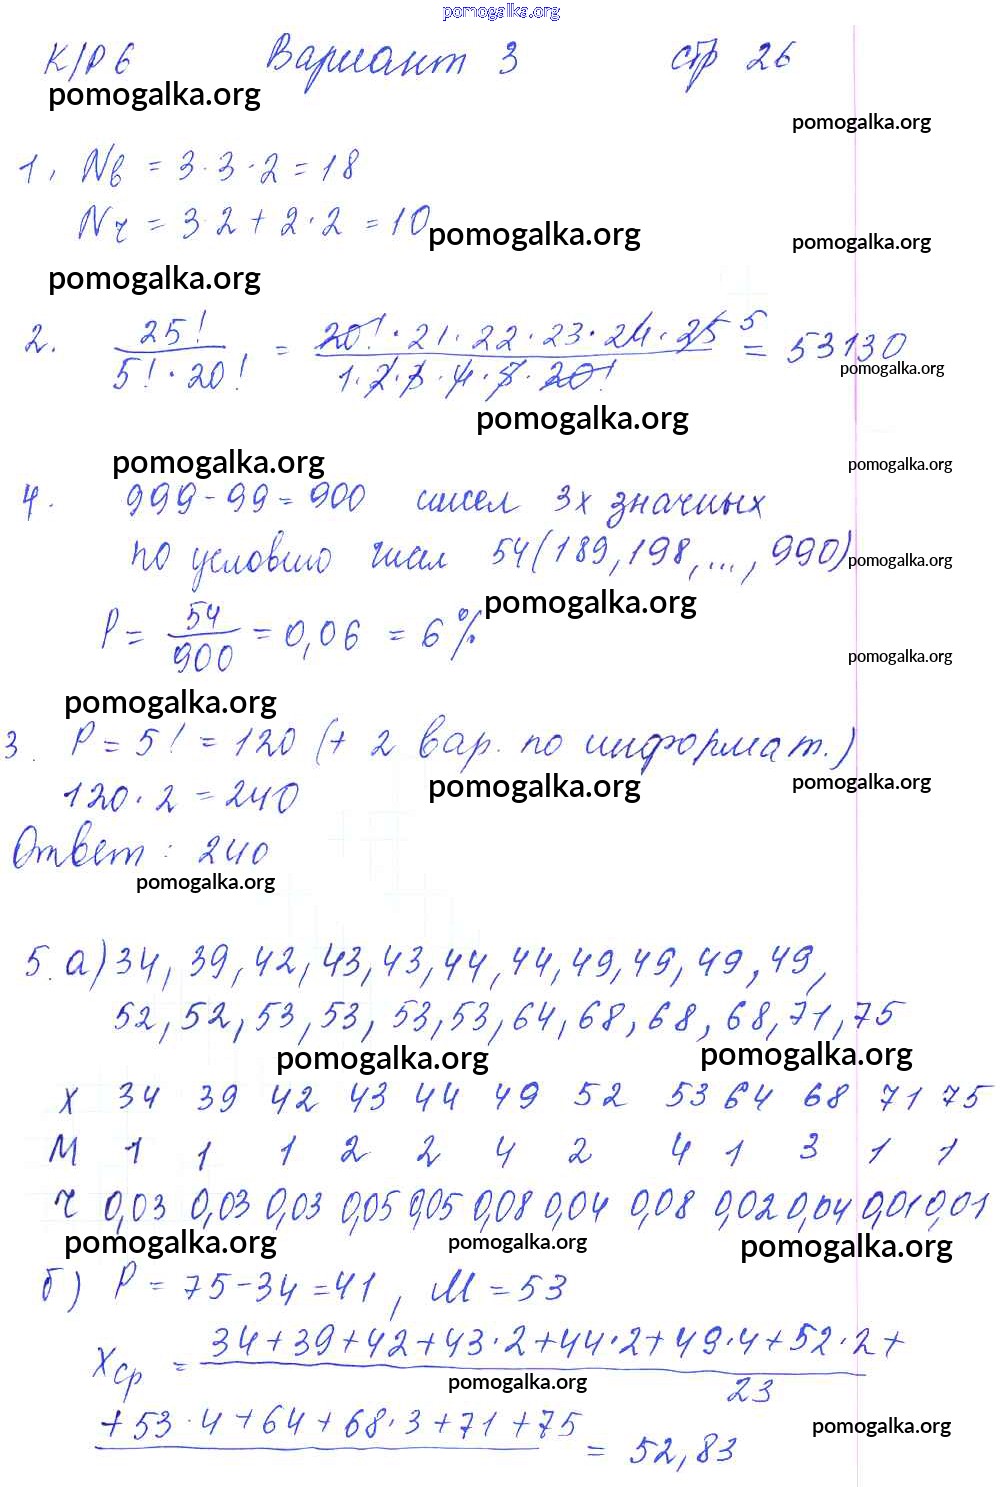 pomogalka.org
К/Р 6 Вариант 3 стр 26
pomogalka.org
pomogalka.org
1, Nв = 3·3·2 = 18
Nч = 3·2 + 2·2 = 10
pomogalka.org
pomogalka.org
pomogalka.org
2. 25! / 5!·20! = 20!·21·22·23·24·25 5 / 1·2·3·4·5·20! = 53130
pomogalka.org
pomogalka.org
pomogalka.org
pomogalka.org
4. 999-99=900 чисел 3х значных
по условию чисел 54(189,198,...,990)
pomogalka.org
pomogalka.org
P = 54/900 = 0,06 = 6%
pomogalka.org
pomogalka.org
3. P = 5! = 120 (+ 2 вар. по информат.)
pomogalka.org
pomogalka.org
120·2 = 240
Ответ: 240
pomogalka.org
5. а) 34, 39, 42, 43, 43, 44, 44, 49, 49, 49, 49,
52, 52, 53, 53, 53, 53, 64, 68, 68, 68, 71, 75
pomogalka.org
pomogalka.org
X 34 39 42 43 44 49 52 53 64 68 71 75
М 1 1 1 2 2 4 2 4 1 3 1 1
ч 0,03 0,03 0,03 0,05 0,05 0,08 0,04 0,08 0,02 0,04 0,01 0,01
pomogalka.org
pomogalka.org
pomogalka.org
б) P = 75-34=41, М = 53
Xср = 34+39+42+43·2+44·2+49·4+52·2+
23
pomogalka.org
pomogalka.org
+53·4+64+68·3+71+75 = 52,83